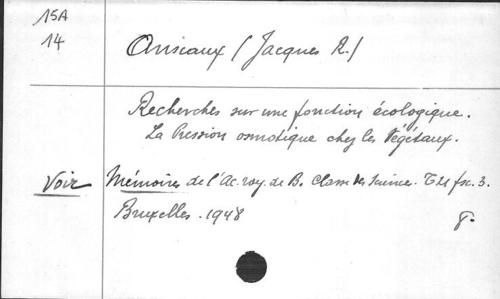 15A
14
Ansiaux (Jacques R.)
Recherches sur une fonction écologique.
La Pression osmotique chez les Végétaux.
Voir Mémoires de l'Ac. roy. de B. Classe des Sciences. T 21 fsc. 3.
Bruxelles. 1948